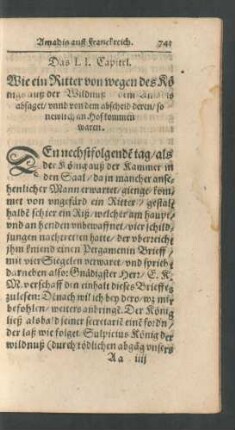 Amadis auß Franckreich. 741
Das L I. Capitel.
Wie ein Ritter von wegen des Kö
nigs auß der Wildnuß
absaget/ vnnd von dem abscheid deren/ so
newlich an Hof kommen
waren.
DEn nechstfolgendē tag/ als
der König auß der Kammer in
den Saal/ da jn mancher ansehenlicher
Mann erwartet/ gienge/ kom̄et
von vngefärd ein Ritter/
halbē schier ein Riß/ welcher am haupt
vnd an henden vnbewaffnet/ vier schild
jungen nachtretten hatte/ der vberreicht
jhm kniend einen Pergamenin Brieff/
mit vier Sieglen verwaret/ vnd sprich
darneben also: Gnädigster Herr/ E. K.
M. verschaff den einhalt dieses Brieffes
zulesen: Demach wil ich bey dero/ wz mir
befohlen/ weiter anbringē. Der König
ließ alsbald seiner secretariē einē fordn/
der laß wie folget. Sulpicius König der
wildnuß (durch tödlichen abgäg vnsers
Aa iiij